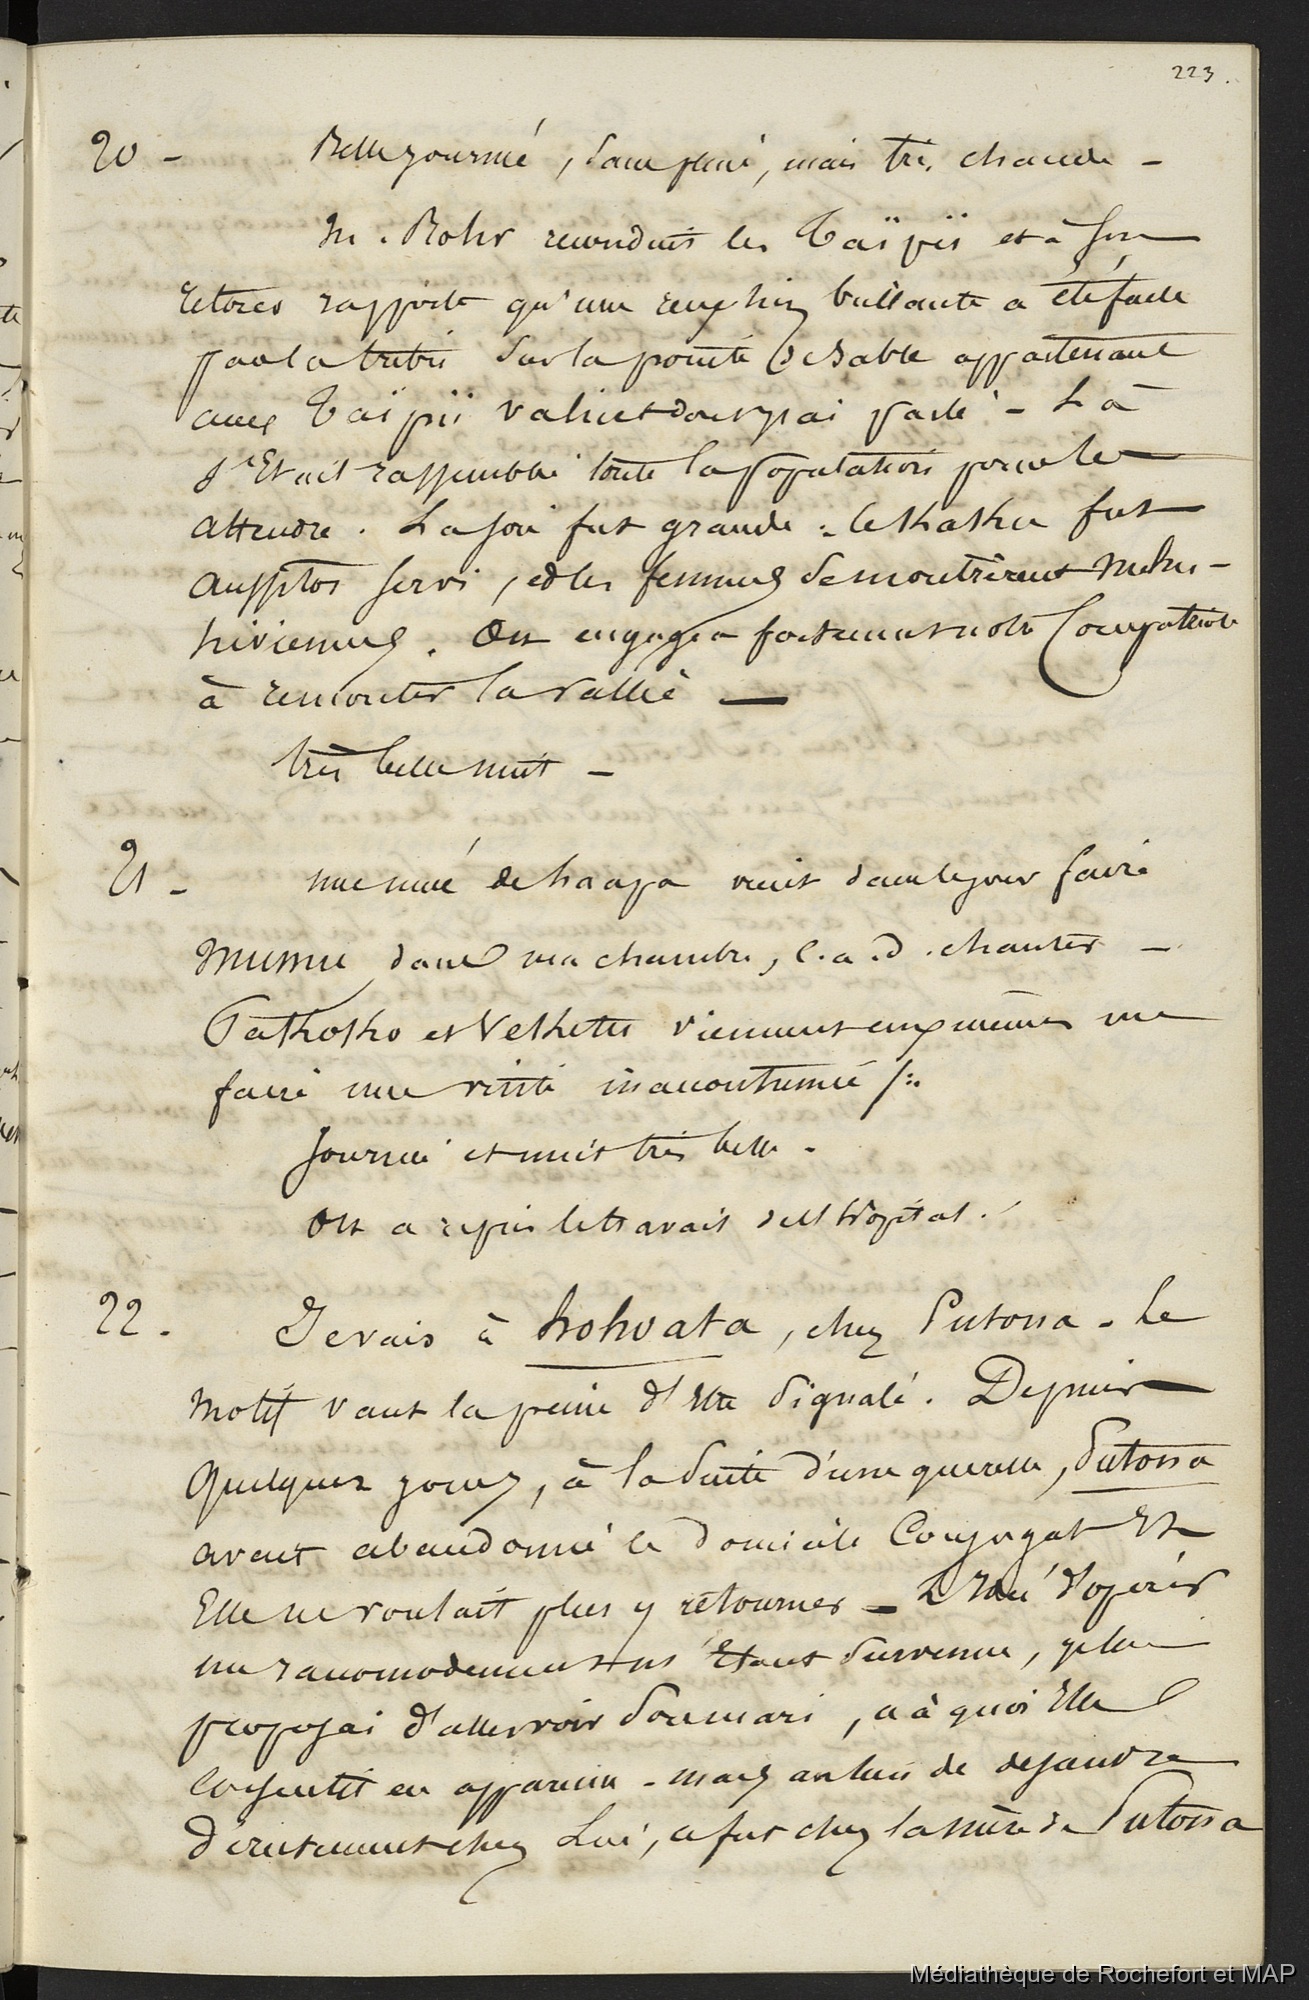 223.
20 - Belle journée, sans pluie, mais très chaude -
M. Rohr reconduit les Taïpiis et à son
retour rapporte qu'une réception brillante a été faite
par la tribu sur la pointe de sable appartenant
aux Taïpii valïi et dont j'ai parlé - Là
s'était rassemblée toute la population pour les
attendre. La joie fut grande. le Kaskai fut
aussitôt servi, et les femmes se montrèrent Nuku-
hiviennes. On engagea fortement notre Compatriote
à remonter la vallée —
très belle nuit -
21 - une nuée de haapa vient dans le jour faire
mumu dans ma chambre, c.a.d. chanter -
Pakoko et Veketu viennent eux mêmes me
faire une visite inaccoutumée /:.
Journée et nuit très belle.
On a repris le travail de l'hôpital.
22. Je vais à hohoata, chez Putona - Le
motif vaut la peine d'être signalé. Depuis
quelques jours, à la suite d'une querelle, Putona
avait abandonné le domicile Conjugal et
Elle ne voulait plus y retourner - L'idée d'opérer
un raccomodement m'étant survenue, je lui
proposai d'aller voir son mari, à quoi Elle
consentit en apparence - mais au lieu de descendre
directement chez Lui, ce fut chez la mère de Putona
Médiathèque de Rochefort et MAP